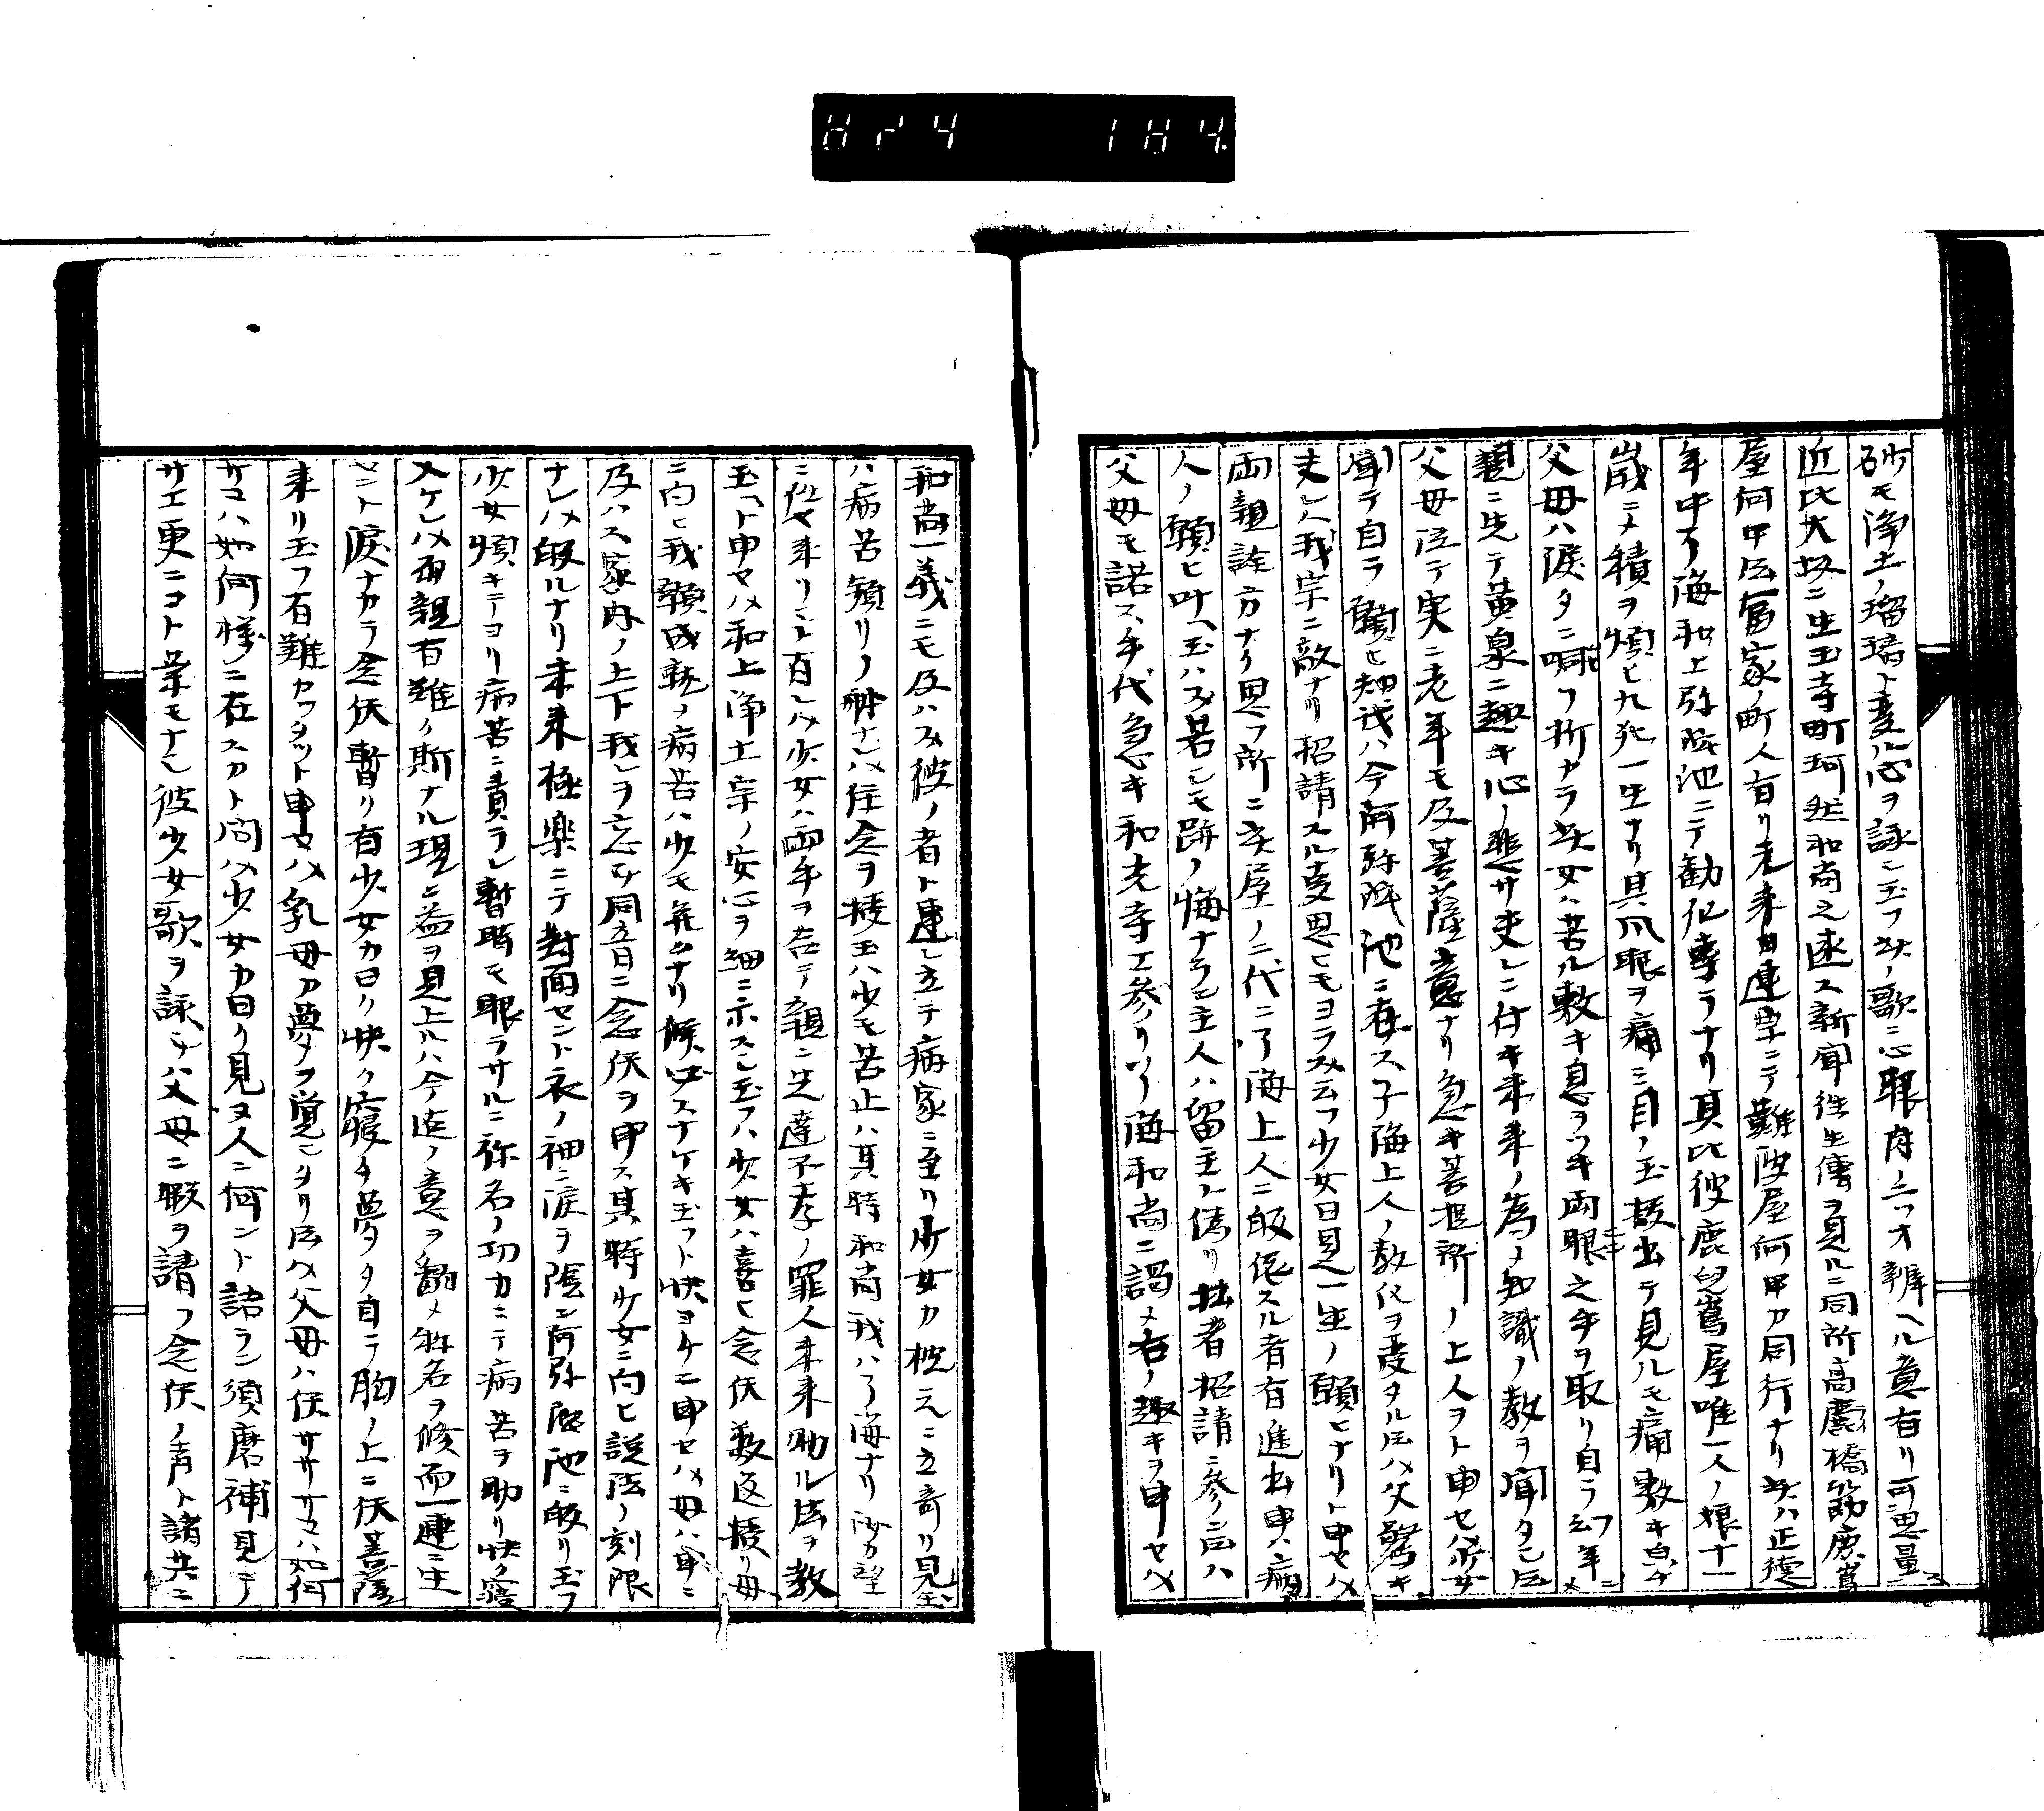 砂モ浄土ノ瑠璃ト変ル心ヲ詠シ玉フ此ノ歌ニ心眼府ノ二ツオ辨ヘル意有リ可思量
近比大坂ニ生玉寺町珂然和尚之述ス新聞往生傳ヲ見ルニ同所高麗橋筋鹿嶌
屋何甲云富家ノ町人有リ元来日連宗ニテ難波屋何甲カ同行ナリ此ハ正徳
年中了海和上弥陀池ニテ勧化専ラナリ其比彼鹿児嶌屋唯一人ノ娘十一
歳ニメ積ヲ煩ヒ九死一生ナリ其爪眼ヲ痛ミ目ノ玉抜出テ見ルモ痛敷キ
父母ハ涙タニ咽フ折カラ此女ハ苦ル敷キ息ヲツキ両眼之手ヲ取リ自ラ幻年ニメ
親ニ先テ黄泉ニ趣キ心ノ悲サ是レニ付キ未来ノ為メ知識ノ教ヲ聞タシ云
父母泣テ実ニ老年モ及菩薩意ナリ急キ菩提所ノ上人ヲト申セハ少女
聞テ自ラ願ヒ智識ハ今阿弥陀池ニ在ス了海上人ノ教化ヲ受タル云ハ父驚キ
夫レハ我宗ニ敵ナリ招請スル事思ヒモヨラス云フ少女曰是一生ノ願ヒナリト申セハ
両親詮方ナク思フ所ニ此屋ノ二代ニ了海上人ニ皈依スル者有進出申ハ病
人ノ願ヒ叶ヘ玉ハス若シモ跡ノ悔ナラン主人ハ留主ト偽リ拙者招請ニ参ン云ハ
父母モ諾ス手代急キ和光寺エ参リ了海和尚ニ謁メ右ノ趣キヲ申セハ
和尚一義ニモ及ハス彼ノ者ト連レ立テ病家ニ至リ少女カ枕元ニ立寄リ見玉
ハ病苦頻リノ躰ナレハ往念ヲ授玉ハ少モ苦止ハ其時和尚我ハ了海ナリ汝カ望
ニ任セ来リシト有レハ少女ハ両手ヲ合テ親ニ先達不孝ノ罪人未来助ル法ヲ教
玉ヘト申セハ和上浄土宗ノ安心ヲ細ニ示スシ玉フハ少女ハ喜ヒ念仏数返授リ母
ニ向ヒ我願成就メ病苦ハ少モ無クナリ候必スナケキ玉フト快ヨケニ申セハ母ハ申ニ
及ハス家内ノ上下我レヲ忘ル同音ニ念仏ヲ申ス其時少女ニ向ヒ説法ノ刻限
ナレハ皈ルナリ未来極楽ニテ對面セント衣ノ袖ニ涙ヲ隠シ阿弥陀池ニ皈リ玉フ
少女煩キニヨリ病苦ニ責ラレ暫時モ眠ラサルニ弥名ノ功力ニテ病苦ヲ助リ快ク寝
入ケレハ両親有難ク斯ナル現益ヲ見上ルハ今迄ノ意ヲ翻メ称名ヲ修而一連ニ生
セント涙ナカラ念仏暫リ有少女カ曰ク快ク寝タ夢タ自ラ胸ノ上ニ仏菩薩
来リ玉フ有難カツタツト申セハ乳母カ夢タヲ覚シタリ云ハ父母ハ仏サササマハ如何
サマハ如何様ニ在スカト問ハ少女カ曰ク見ヌ人ニ何ント語ラン須磨補見テ
サエ更ニコト葉モナシ彼少女歌ヲ詠テハ父母ニ暇ヲ請フ念仏ノ声ト諸共ニ